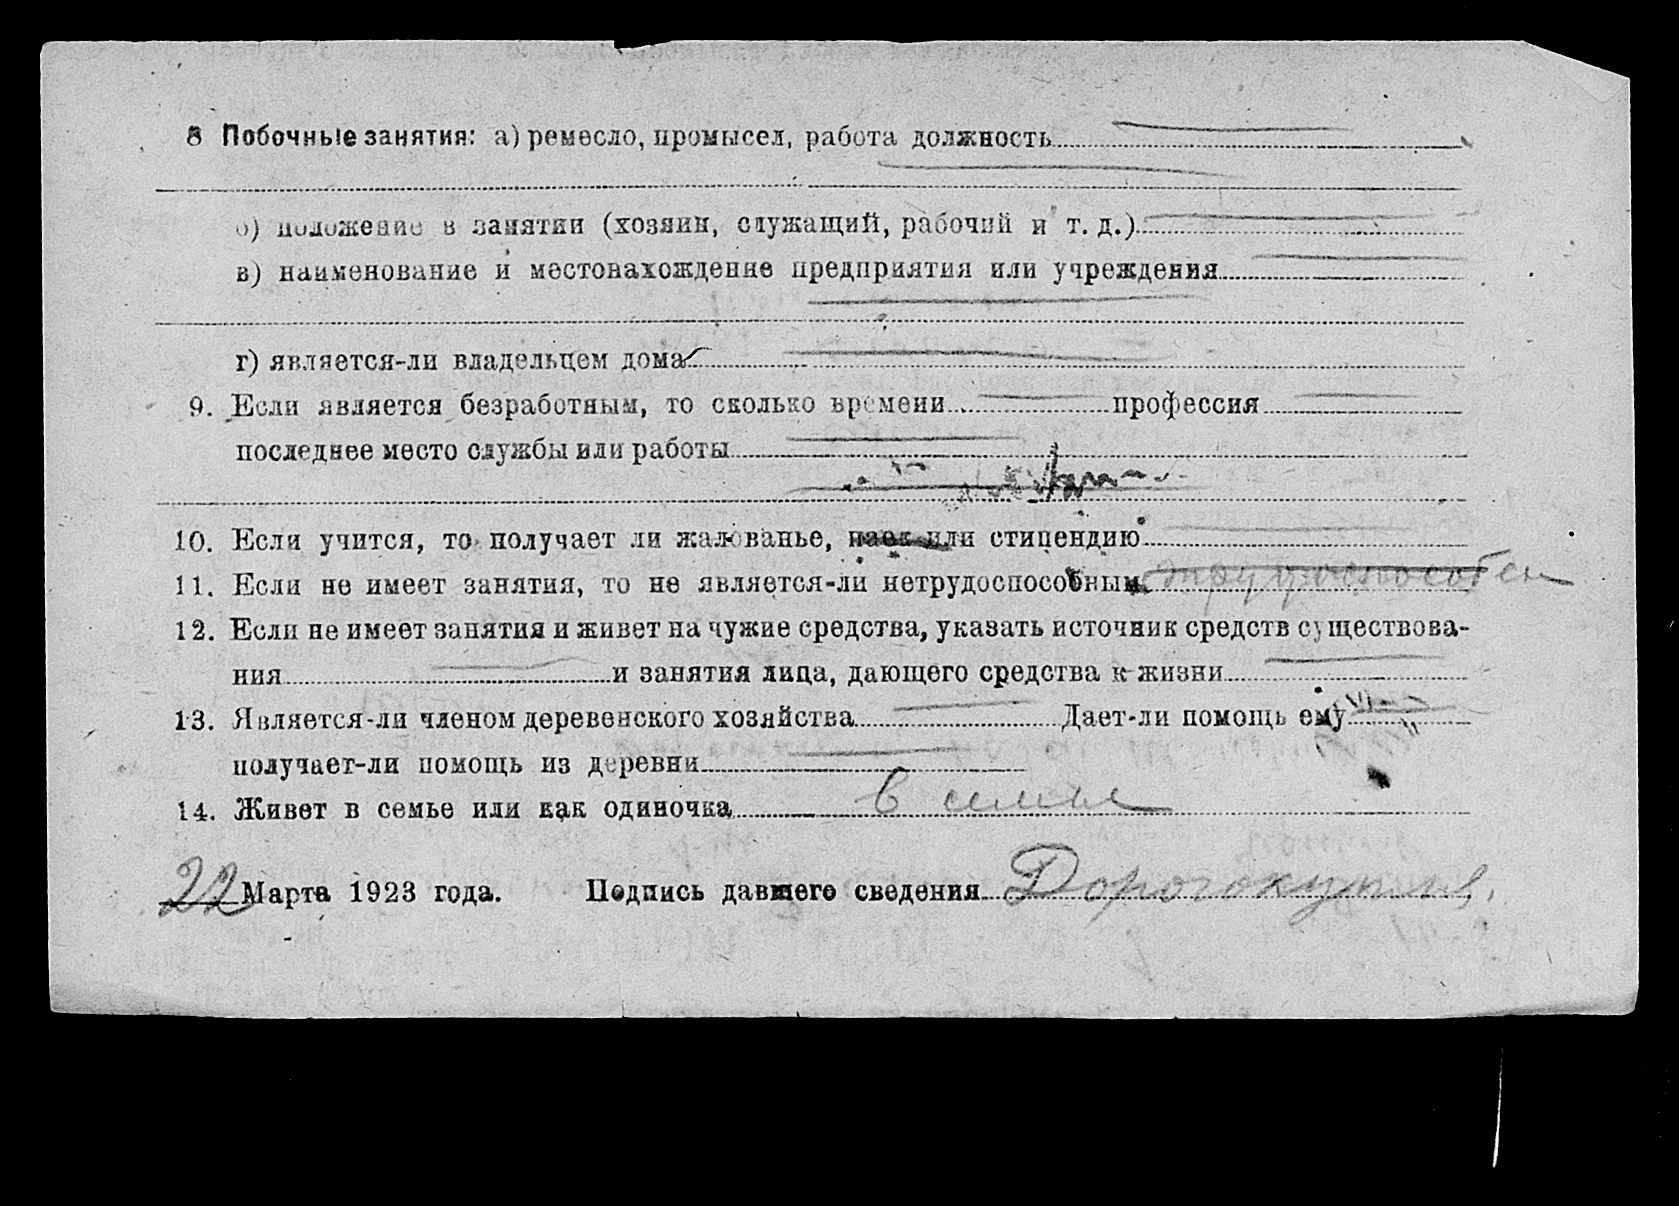 8 Побочные занятия: а) ремесло, промысел, работа должность
б) положение в занятии (хозяин, служащий, рабочий и т. д.)
в) наименование и местонахождение предприятия или учреждения
г) является-ли владельцем дома
9. Если является безработным, то сколько времени профессия
последнее место службы или работы
10. Если учится, то получает ли жалованье, паек или стипендию
11. Если не имеет занятия, то не является-ли нетрудоспособным трудоспособен
12. Если не имеет занятия и живет на чужие средства, указать источник средств существова-
ния и занятия лица, дающего средства к жизни
13. Является-ли членом деревенского хозяйства Дает-ли помощь ему
получает-ли помощь из деревни
14. Живет в семье или как одиночка в семье
22 Марта 1923 года. Подпись давшего сведения